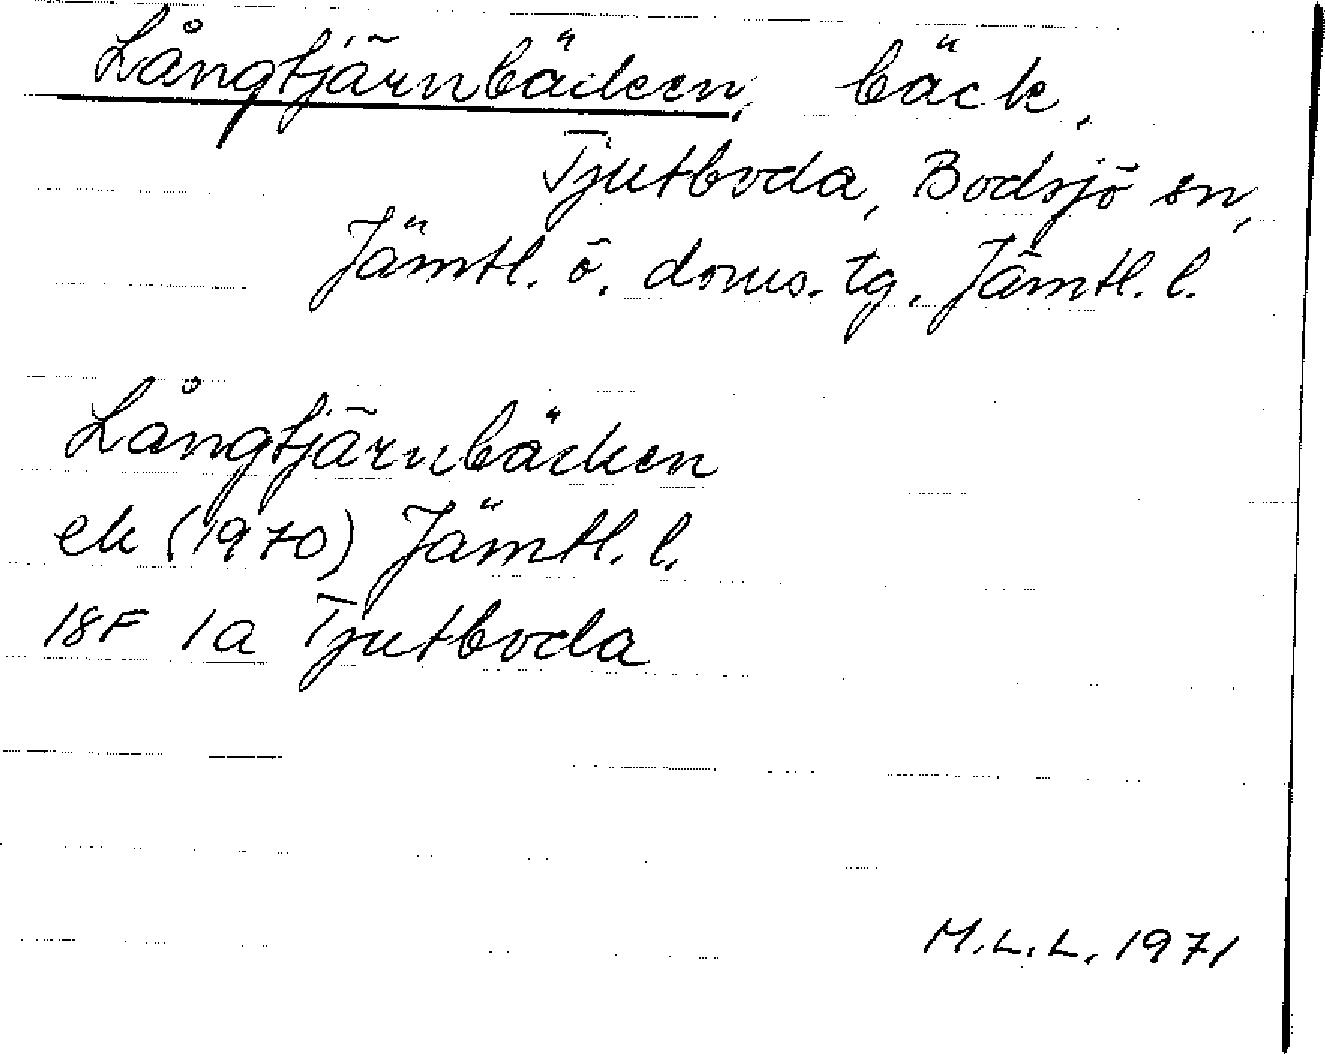 Långtjärnbäcken, bäck,
Tjutboda, Bodsjö sn,
Jämtl. ö. doms. tg, Jämtl. l.
Långtjärnbäcken
ek (1970) Jämtl. l.
18F 1a Tjutboda
M.L.L. 1971